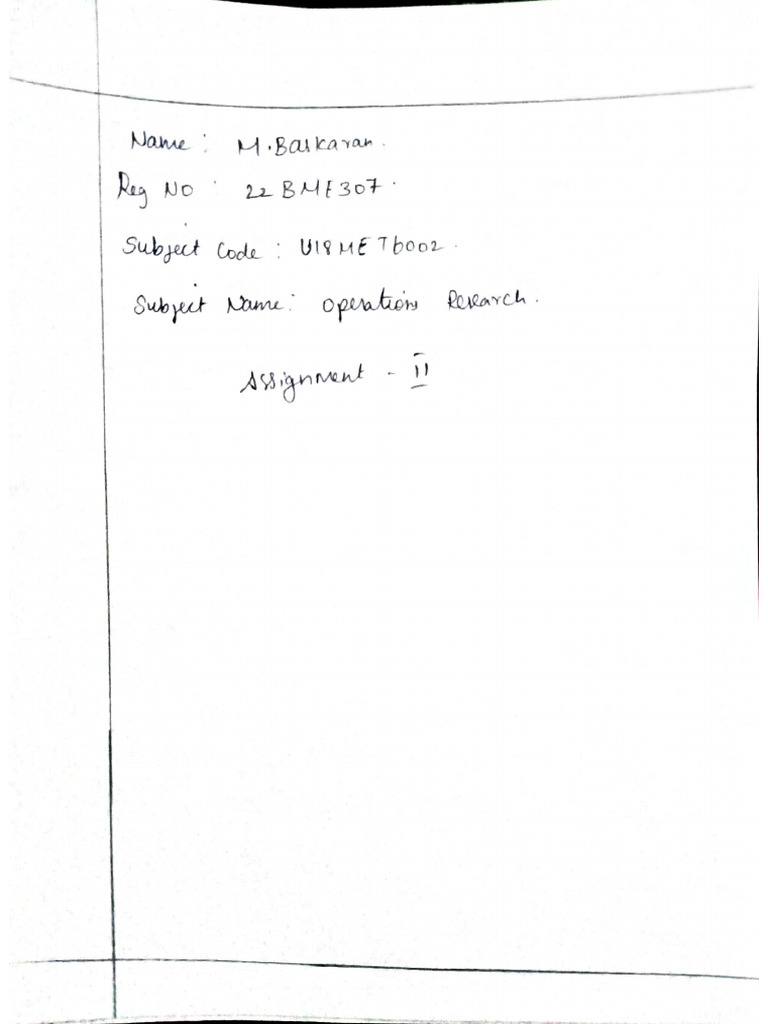 Name : M.Baskaran.
Reg No : 22BME307.
Subject Code : U18MET6002.
Subject Name: Operations Research.
Assignment - II